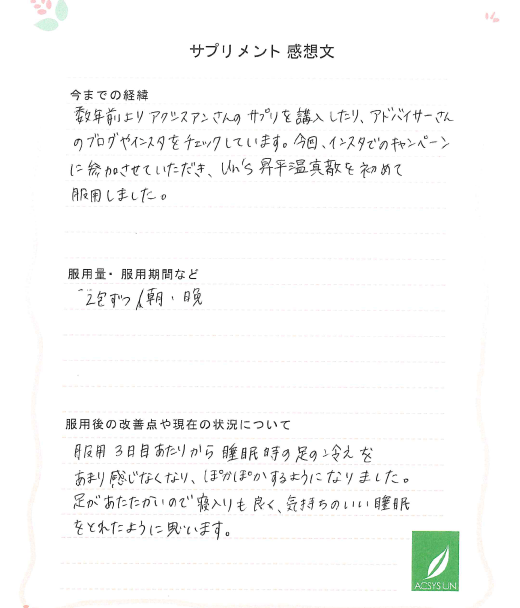 サプリメント 感想文
今までの経緯
数年前よりアクシスアンさんのサプリを購入したり、アドバイサーさん
のブログやインスタをチェックしています。今回、インスタでのキャンペーン
に参加させていただき、Un's 昇平温真散を初めて
服用しました。
服用量・服用期間など
2包ずつ 朝・晩
服用後の改善点や現在の状況について
服用3日目あたりから睡眠時の足の冷えを
あまり感じなくなり、ぽかぽかするようになりました。
足があたたかいので寝入りも良く、気持ちのいい睡眠
をとれたように思います。
ACSYS UN